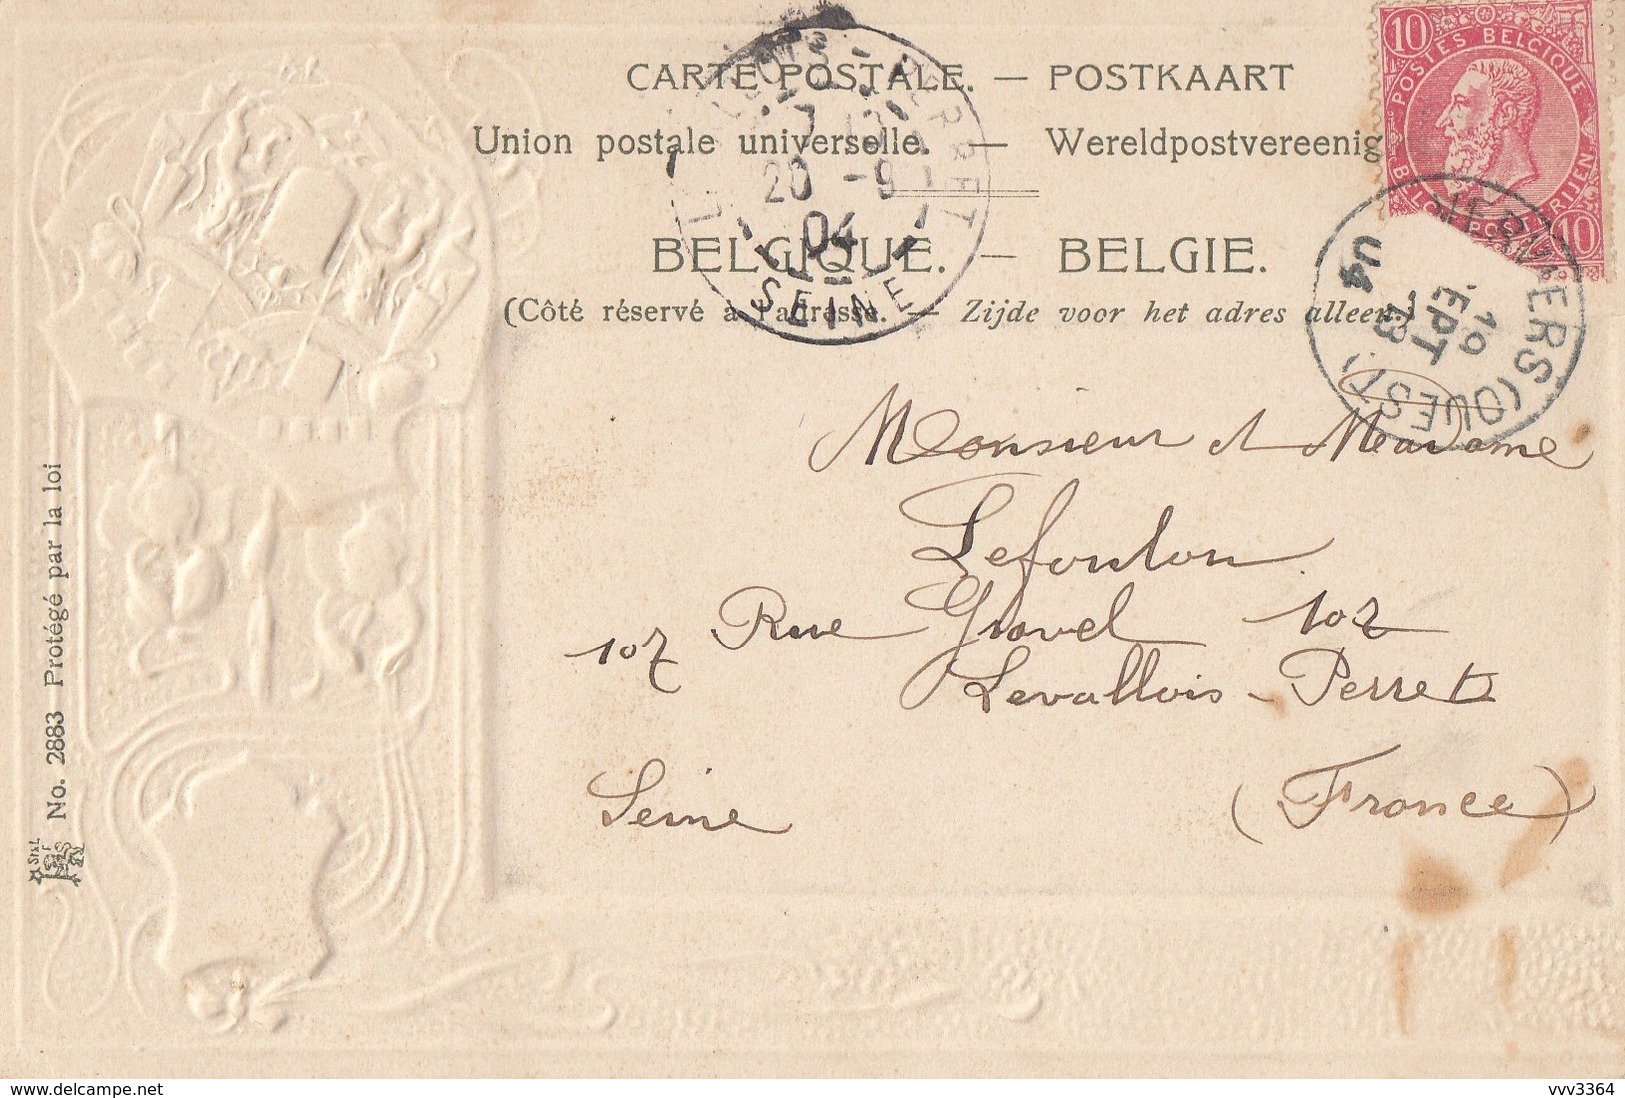 CARTE POSTALE. — POSTKAART
Union postale universelle. — Wereldpostvereenig
BELGIQUE. — BELGIE.
(Côté réservé à l'adresse. — Zijde voor het adres alleen.)
10 POSTES BELGIQUE
10
20 -9
04
SEINE
ERS (OUEST)
19
EPT
04
Monsieur et Madame
Lefoulon
107 Rue Gravel 102
Levallois-Perret
Seine (France)
No. 2883 Protégé par la loi
vvv3364